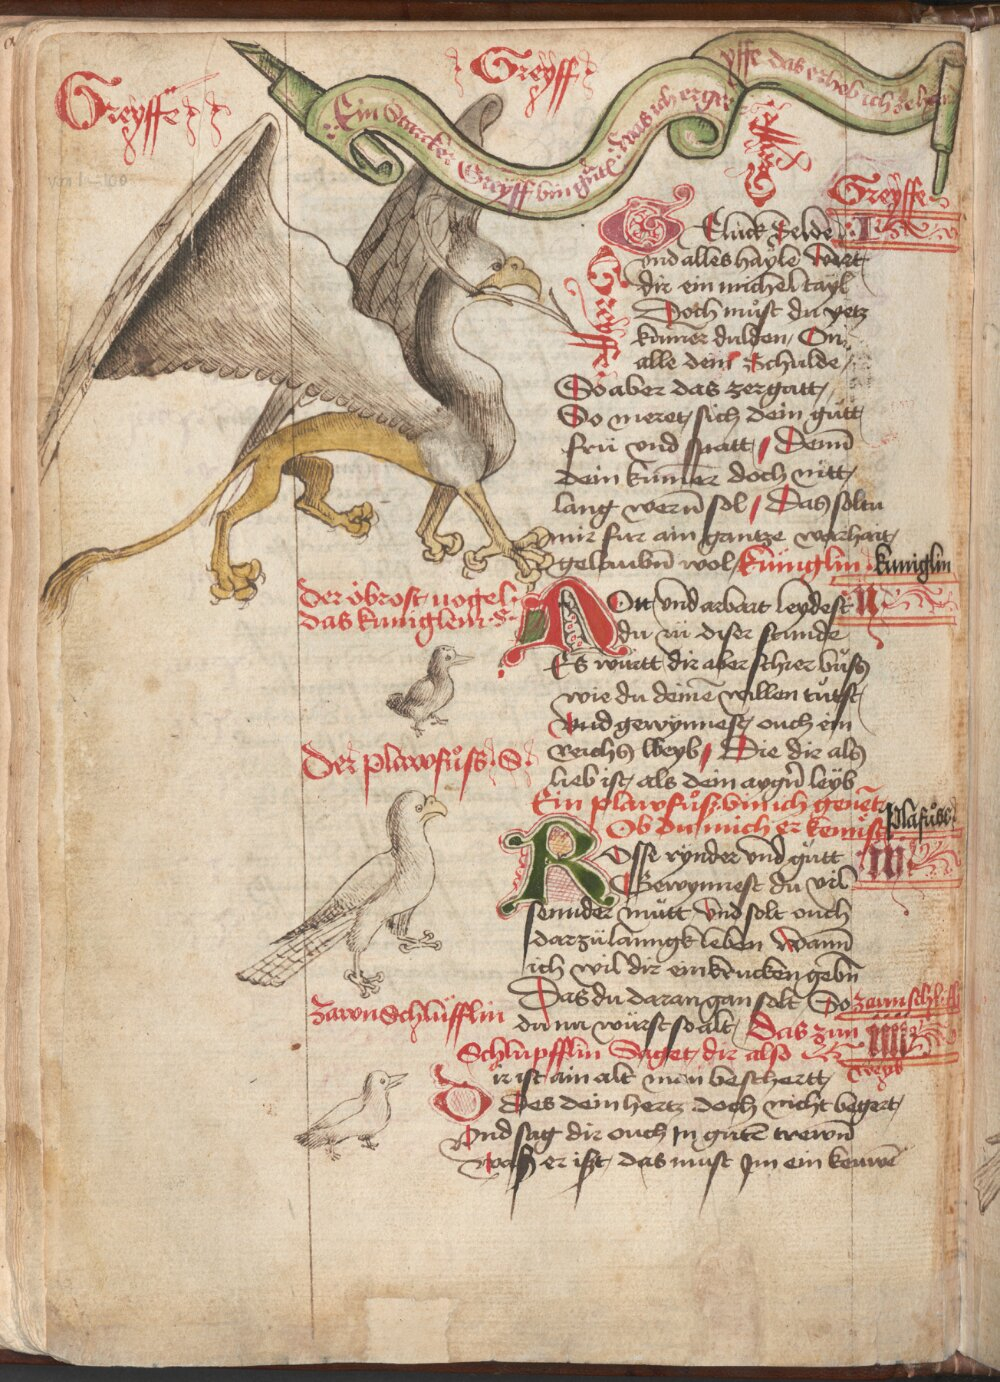 Greyffe
Greyff
Ein Starcker Greyff bin ich
was ich ergreyffe das erheb ich
Greyff
Greyffe
Greyff
I
Glück Selde
vnd alles hayle wert
dir ein michel tayl
Doch muͦst du yetz
kumer dulden, On
alle dein Schulde
So aber das zergatt
So meret sich dein guͦtt
frü vnd spatt Denn
dein kumer doch nitt
lang wern sol Das soltu
mir fur ain gantze warhait
gelaubn wol Künglin
kuniglin
Der obrost uogel
das kuniglein S
II
Nott vnd arbait leydest
du zu diser stunde
Es württ dir aber schier buͦß
wie du deinen willen tuͦtst
Vnd gewynnest ouch ein
Reichs Weyb Die dir als
lieb ist, als dein aygen leyb
Der plawfuͦss S
Ein plawfuͦß bin ich genent
Ob du mich erkennst
Plafuͦss
III
Rosse rynder vnd guͦtt
Gewynnest du vil
sennder muͦtt Vnd solt ouch
darzuͦ lanngk leben Wann
ich wil dir ein krucken gebn
Das du daran gan solt So
du nu würst so alt
Zawnschlüfflin
Das zun
Schlupfflin Saget dir also
IIII
weyb
Dir ist ain alt man beschertt
Des dein hertz doch nicht begert
Vnd sag dir ouch In guten trewen
Was er ißt, das must Im ein kewen